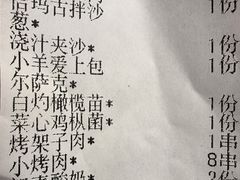 玛古拌沙 1份
葱*
浇汁夹沙* 1份
小羊爱上包 1份
尔萨克*
白灼橄榄苗* 1份
菜心鸡枞菌* 份
烤架子肉* 1串
小烤肉* 8串
酸奶*